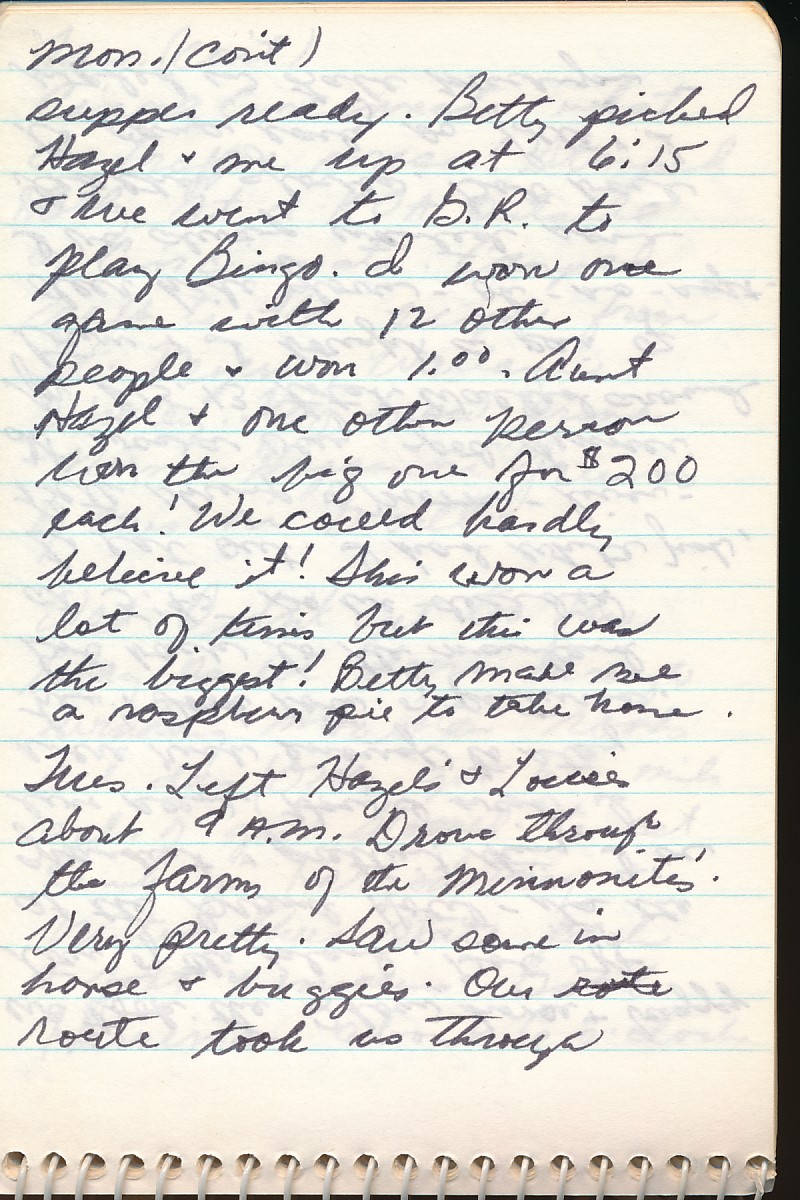 Mon. (Con't)
supper ready. Betty picked
Hazel & me up at 6:15
& we went to G.R. to
play Bingo. I won one
game with 12 other
people & won 1.00. Aunt
Hazel & one other person
won the big one for $200
each! We could hardly
believe it! Shis won a
lot of times but this was
the biggest! Betty made me
a raspberry pie to take home.
Tues. Left Hazel's & Louies
about 9 A.M. Drove through
the farms of the Minnonites'.
Very pretty. Saw some in
horse & buggies. Our rote
route took us through